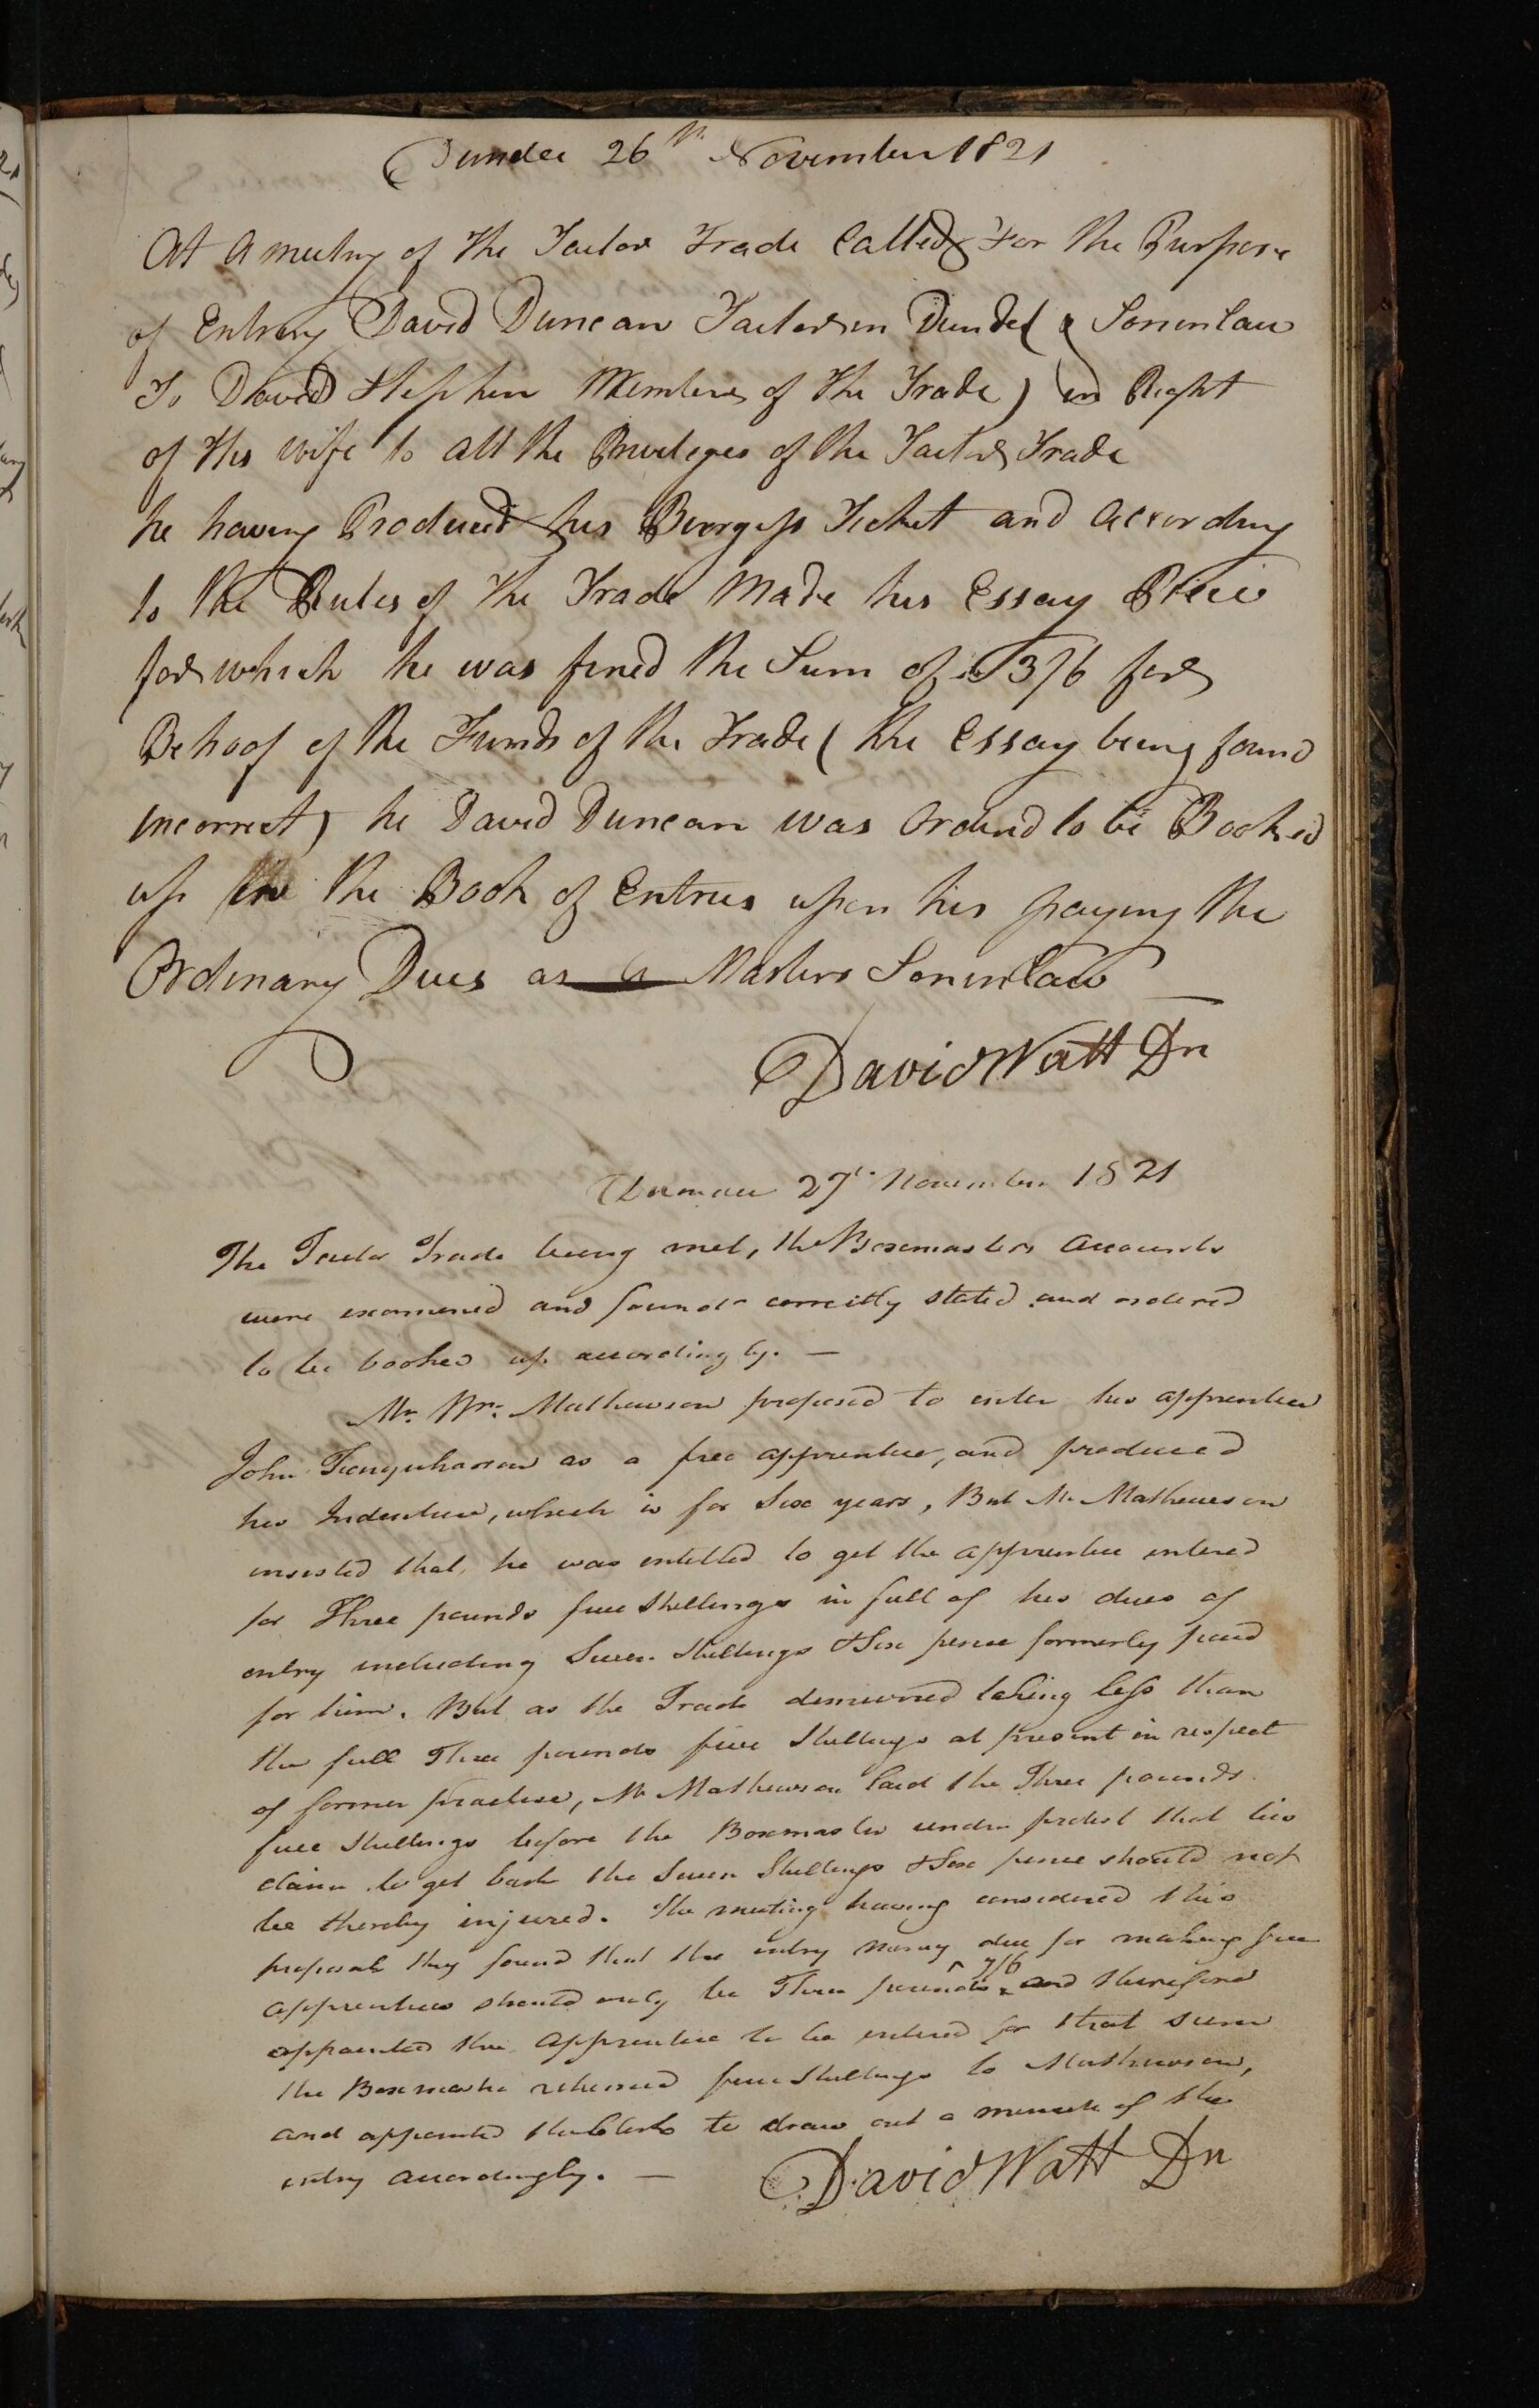 Dundee 26th November 1821
At a meeting of the Tailor Trade Called For the Purpose
of Entring David Duncan Tailor in Dundee ( a Soninlaw
To David Stephen Member of the Trade ) in Right
of His wife to all the Privileges of the Tailor Trade
he having Produced his Burgess Ticket and According
to the Rules of the Trade Made his Essay Piece
for which he was fined the Sum of 3/6 for
Behoof of the Funds of the Trade ( the Essay being found
incorrect ) he David Duncan was Ordend to be Booked
up in the Book of Entries upon his paying the
Ordinary Dues as a Masters Soninlaw
David Watt Dn
Dundee 27th November 1821
The Tailor Trade being met, the Boxmasters accounts
were examined and found correctly stated and ordered
to be booked up accordingly. —
Mr. Wm. Mathewson proposed to enter his apprentice
John Farquharson as a free apprentice, and produced
his Indenture, which is for Six years, But Mr Mathewson
insisted that he was entitled to get the apprentice entered
for Three pounds five Shillings in full of his dues of
entry including Seven Shillings & Six pence formerly paid
for him. But as the Trade demurred taking less than
the full Three pounds five Shillings at present in respect
of former practice, Mr Mathewson laid the Three pounds
five Shillings before the Boxmaster under protest that his
claim to get back the Seven Shillings & Six pence should not
be thereby injured. The meeting having considered this
proposal they found that the entry money due for making free
apprentices should only be Three pounds ^ 7/6 and therefore
appointed the apprentice to be entered for that sum
the Boxmaster returned five Shillings to Mathewson,
and appointed the Clerk to draw out a minute of the
entry accordingly. —
David Watt Dn